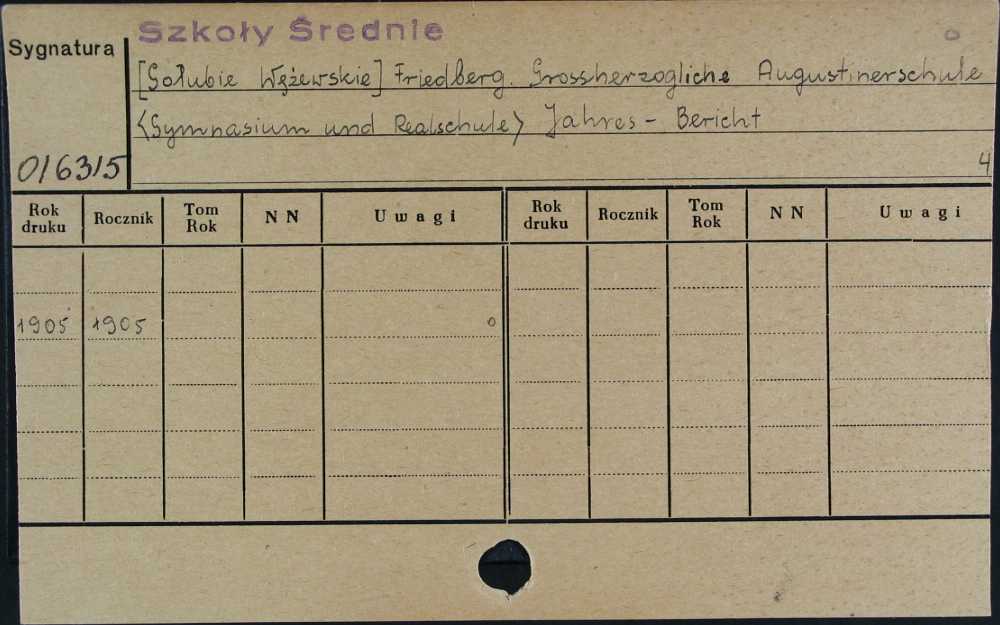 Szkoły Średnie
o
Sygnatura
[Gołubie Wężewskie] Friedberg. Grossherzogliche Augustinerschule
<Gymnasium und Realschule> Jahres - Bericht
0/6315
4
Rok druku Rocznik Tom Rok N N Uwagi Rok druku Rocznik Tom Rok N N Uwagi
1905 1905 o